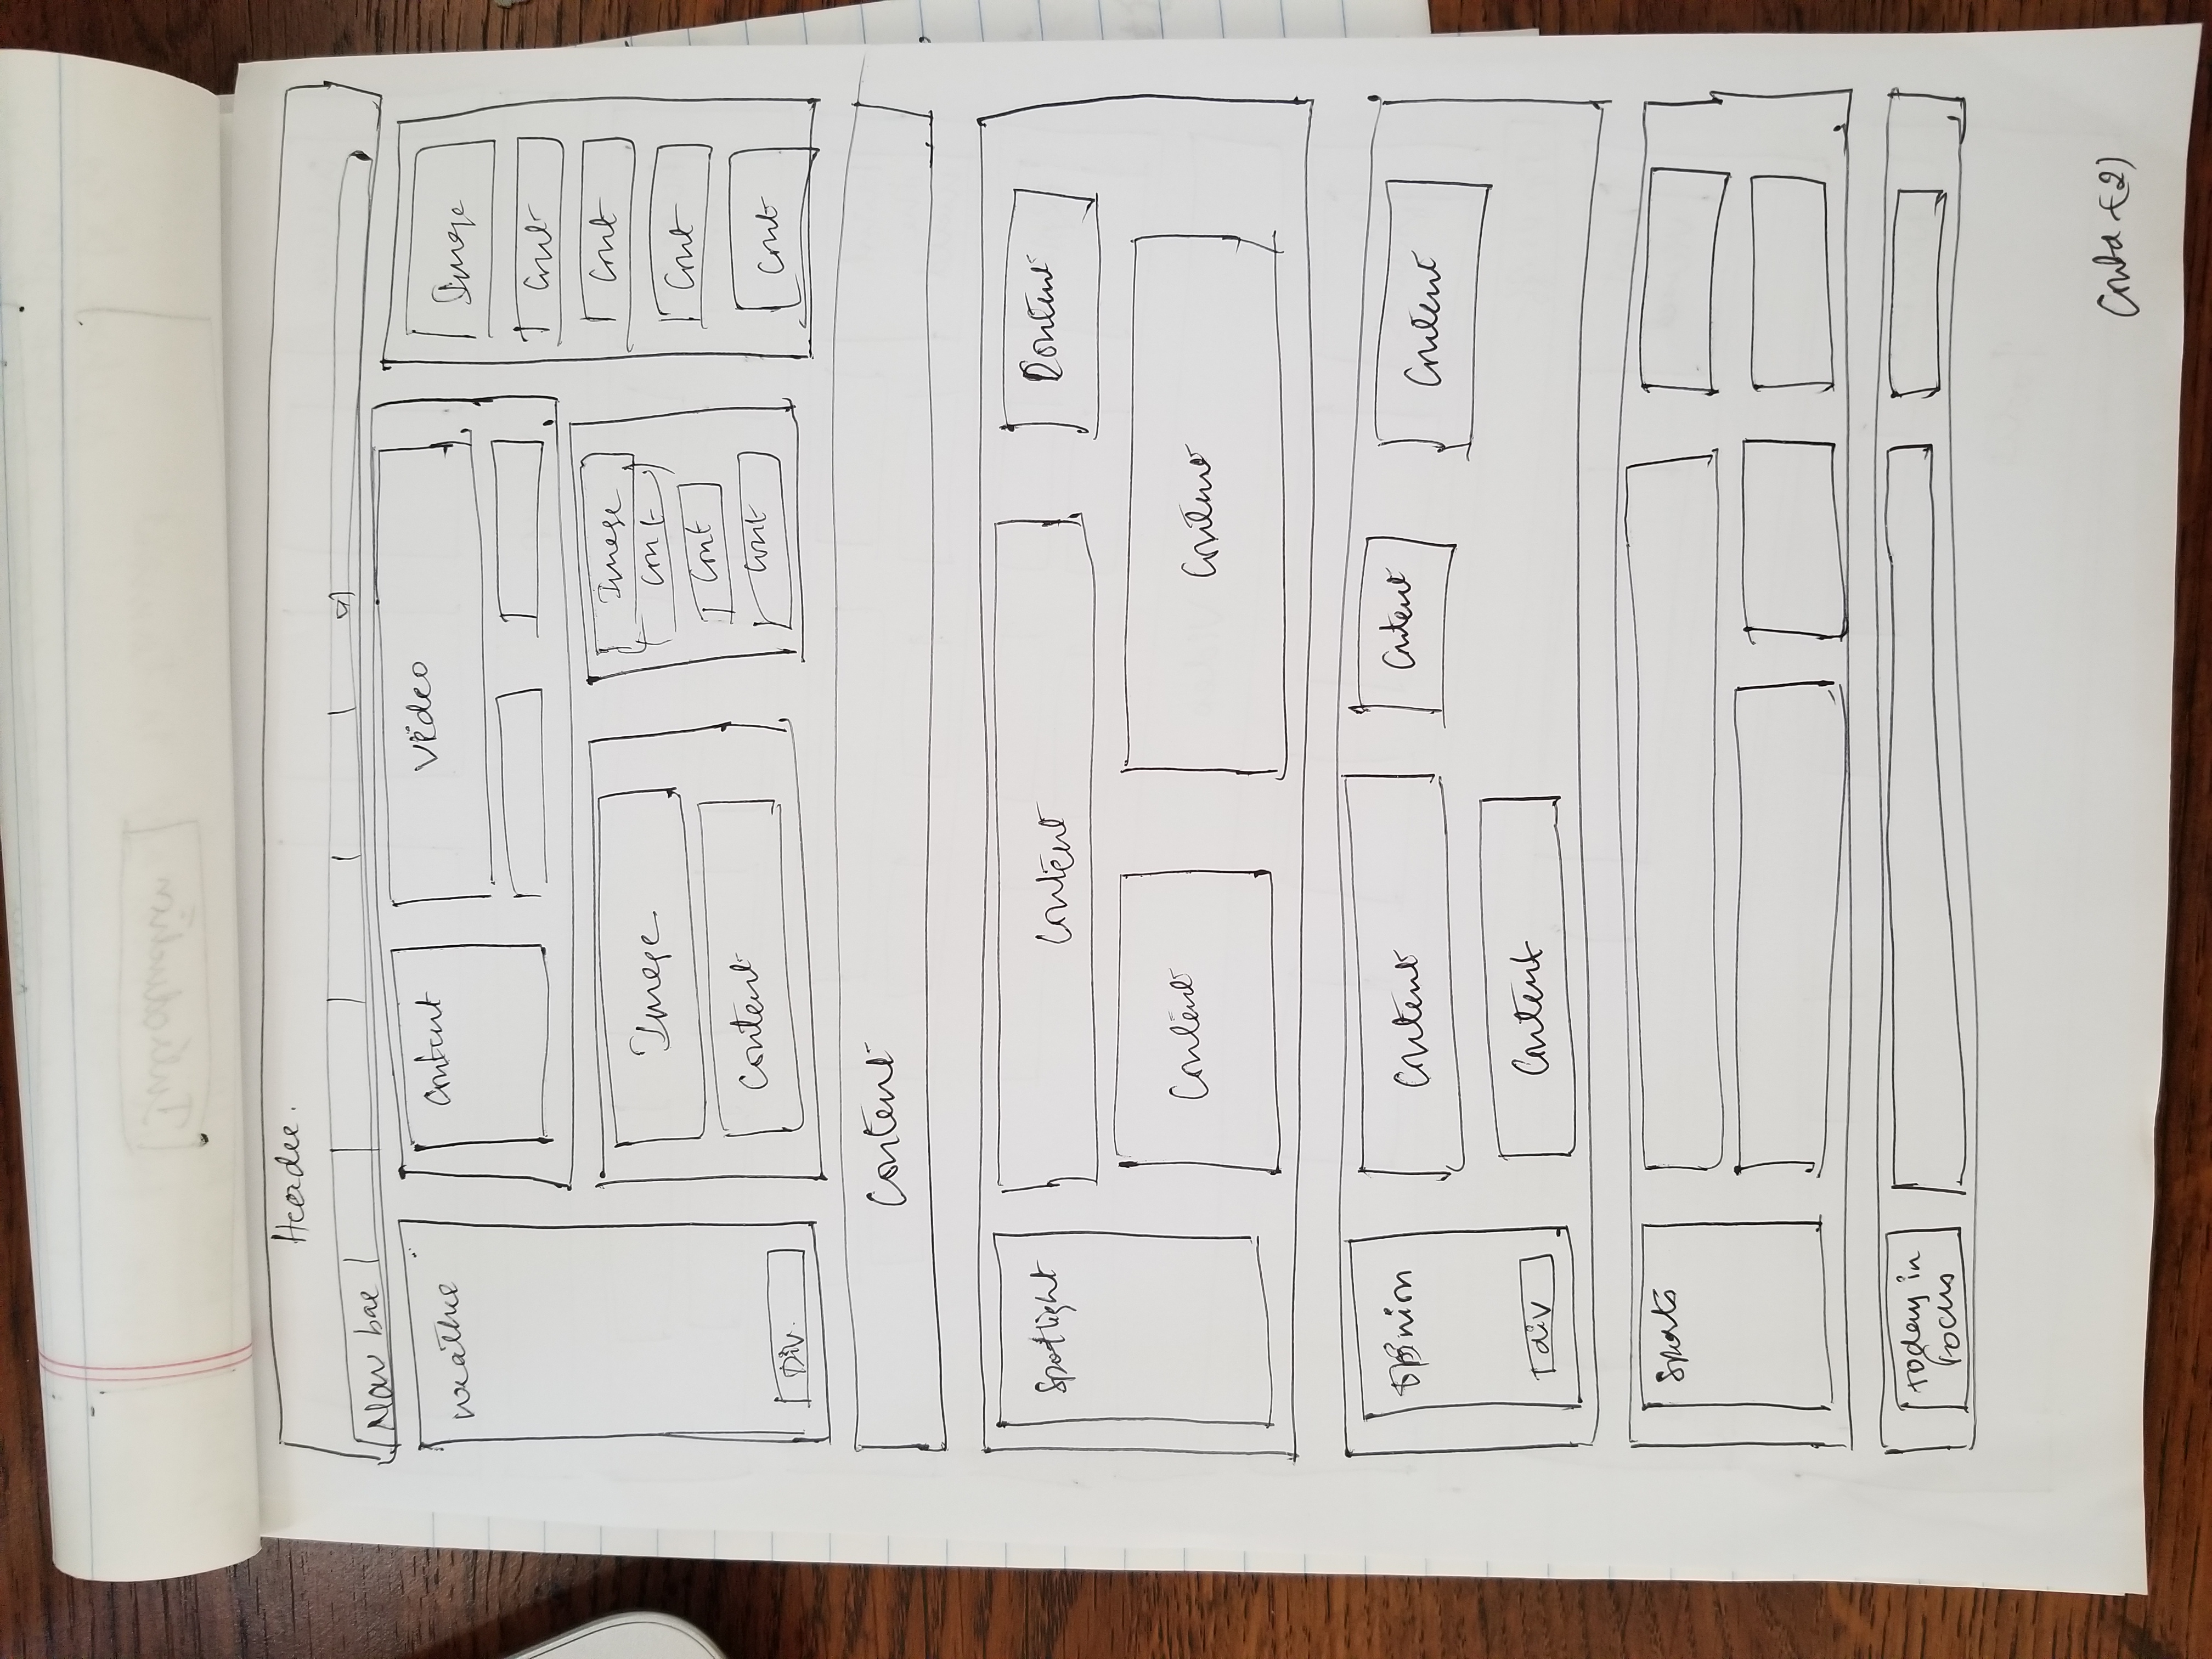 Introduction
Header.
Nav bar
Weather
Content
Video
Image
Cont
Cont
Cont
Cont
Image
Content
Image
Cont
Cont
Cont
Div.
Content
Spotlight
Content
Content
Content
Content
Opinion
Content
Content
Content
Content
div
Sports
Today in
Focus